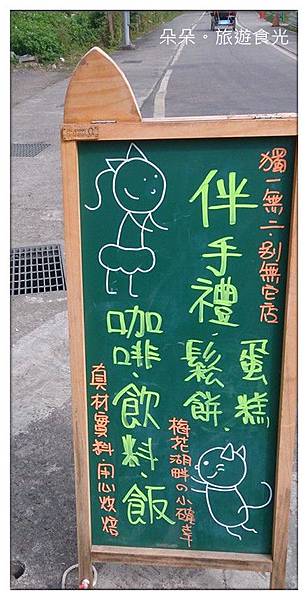 朵朵。旅遊食光
獨一無二 別無它店
伴手禮.
蛋糕
鬆餅.
咖啡.飲料.飯
梅花湖畔の小確幸
真材實料 用心炊焙